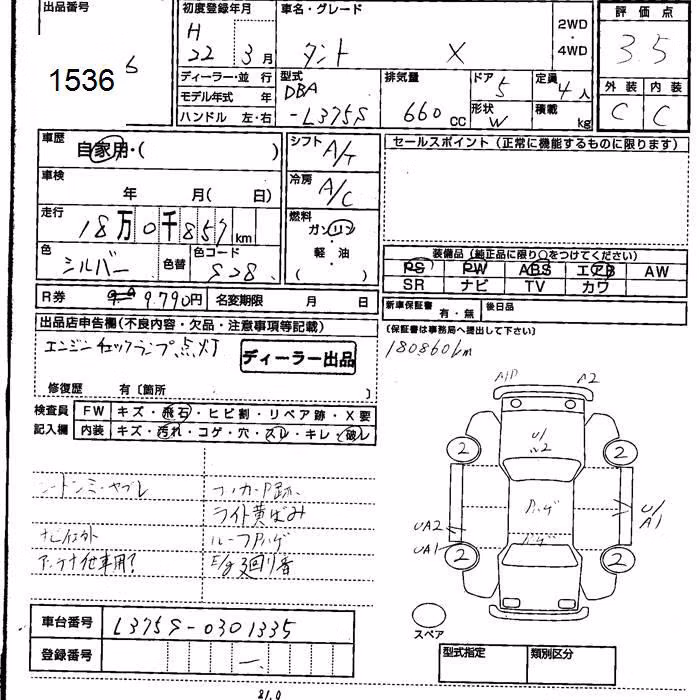 出品番号
1536
初度登録年月
H
22 3月
車名・グレード
タント X
2WD
・
4WD
評価点
3.5
外装 内装
C C
ディーラー・並行
モデル年式 年
ハンドル 左・右
型式
DBA
-L375S
排気量
660 cc
ドア 5
形状 W
定員 4人
積載 kg
車歴
自家用・( )
車検
年 月( 日)
走行
18万0千857km
色
シルバー
色替
色コード
S28
シフト
A/T
冷房
A/C
燃料
ガソリン
・
軽油
( )
セールスポイント(正常に機能するものに限ります)
装備品(純正品に限り○をつけてください)
PS PW ABS エアB AW
SR ナビ TV カワ
R券 9,790円 名変期限 月 日
新車保証書 有・無 後日品
(保証書は事務局へ提出して下さい)
出品店申告欄(不良内容・欠品・注意事項等記載)
エンジンチェックランプ点灯
ディーラー出品
180860km
修復歴 有〔箇所 〕
検査員
記入欄
FW キズ・飛石・ヒビ割・リペア跡・X要
内装 キズ・汚れ・コゲ・穴・スレ・キレ・破レ
A2
U/
2
2
ハゲ
U/
A1
UA2
UA1
2
2
ハゲ
シートシミ・ヤブレ
ライト黄ばみ
ナビ社外
ルーフPハゲ
アンテナ他車用?
E/g廻り音
スペア
車台番号 L375S-0301335
登録番号 一
型式指定 類別区分